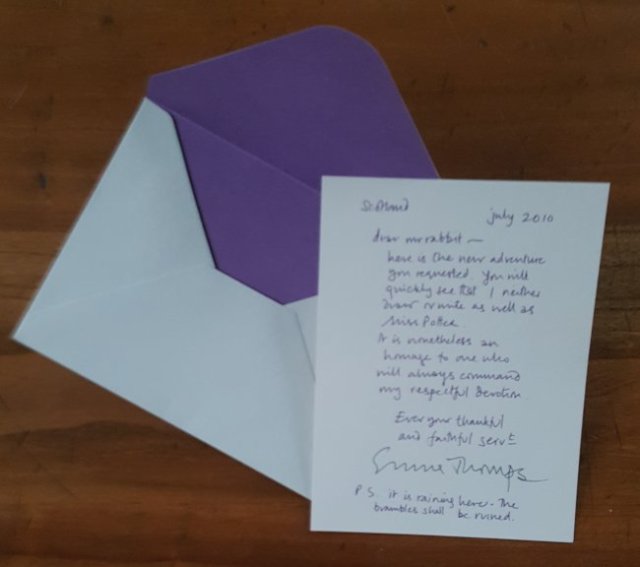 Scotland
july 2010
dear mr rabbit —
here is the new adventure
you requested. You will
quickly see that I neither
draw or write as well as
Miss Potter.
It is nonetheless an
homage to one who
will always command
my respectful devotion
Ever your thankful
and faithful servt
Emma Thompson
P.S. it is raining here - The
brambles shall be ruined.